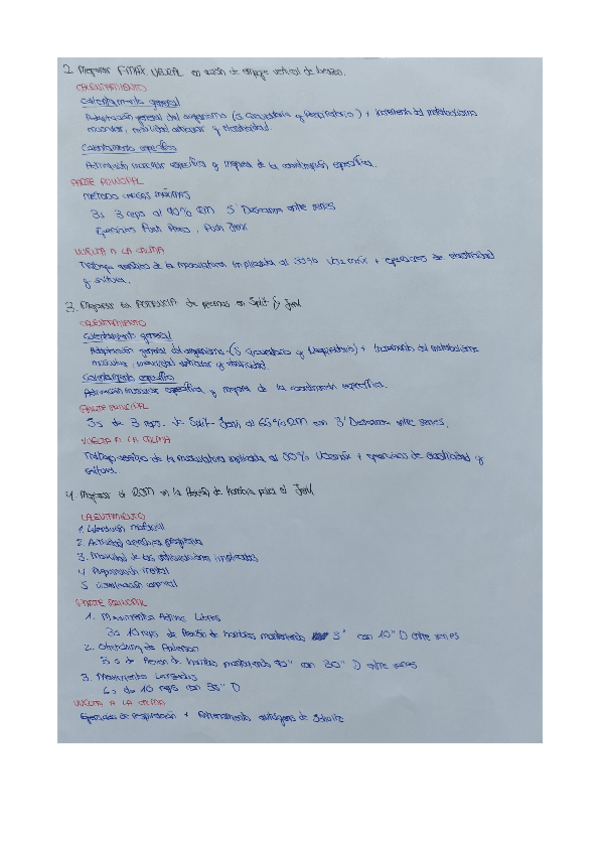 2. Mejorar F. MÁX VELOCAL en acción de empuje vertical de brazos.
CALENTAMIENTO
Calentamiento general
Adaptación general del organismo (S Circulatorio y Respiratorio) + incremento del metabolismo
muscular, movilidad articular y elasticidad.
Calentamiento específico
Activación muscular específica y mejora de la coordinación específica.
PARTE PRINCIPAL
MÉTODO CARGAS MÁXIMAS
3s 3 reps al 90% RM 5' Descanso entre series
Ejercicios Push Press, Push Jerk
VUELTA A LA CALMA
Trabajo aeróbico de la musculatura implicada al 30% VO2 máx + ejercicios de elasticidad
y soltura.
3. Mejorar la POTENCIA de piernas en Split Jerk
CALENTAMIENTO
Calentamiento general
Adaptación general del organismo (S Circulatorio y Respiratorio) + Incremento del metabolismo
muscular, movilidad articular y elasticidad
Calentamiento específico
Activación muscular específica y mejora de la coordinación específica.
PARTE PRINCIPAL
3s de 3 reps. de Split Jerk al 65% RM con 3' Descanso entre series.
VUELTA A LA CALMA
Trabajo aeróbico de la musculatura implicada al 30% VO2máx + ejercicios de elasticidad y
soltura.
4. Mejorar el ROM en la flexión de hombro para el Jerk
CALENTAMIENTO
1.
2. Actividad aeróbica
3. Movilidad de las articulaciones implicadas
4. Preparación mental
5. Coordinación corporal
PARTE PRINCIPAL
1. Movimientos Activos Libres
3s 10 reps de flexión de hombros manteniendo 3" con 10" D entre series
2. Stretching de Anderson
3 s de flexión de hombros manteniendo con 30" D entre series
3. Movimientos Lanzados
6s de 10 reps con D
VUELTA A LA CALMA
Ejercicios de respiración + Entrenamiento autógeno de Schultz